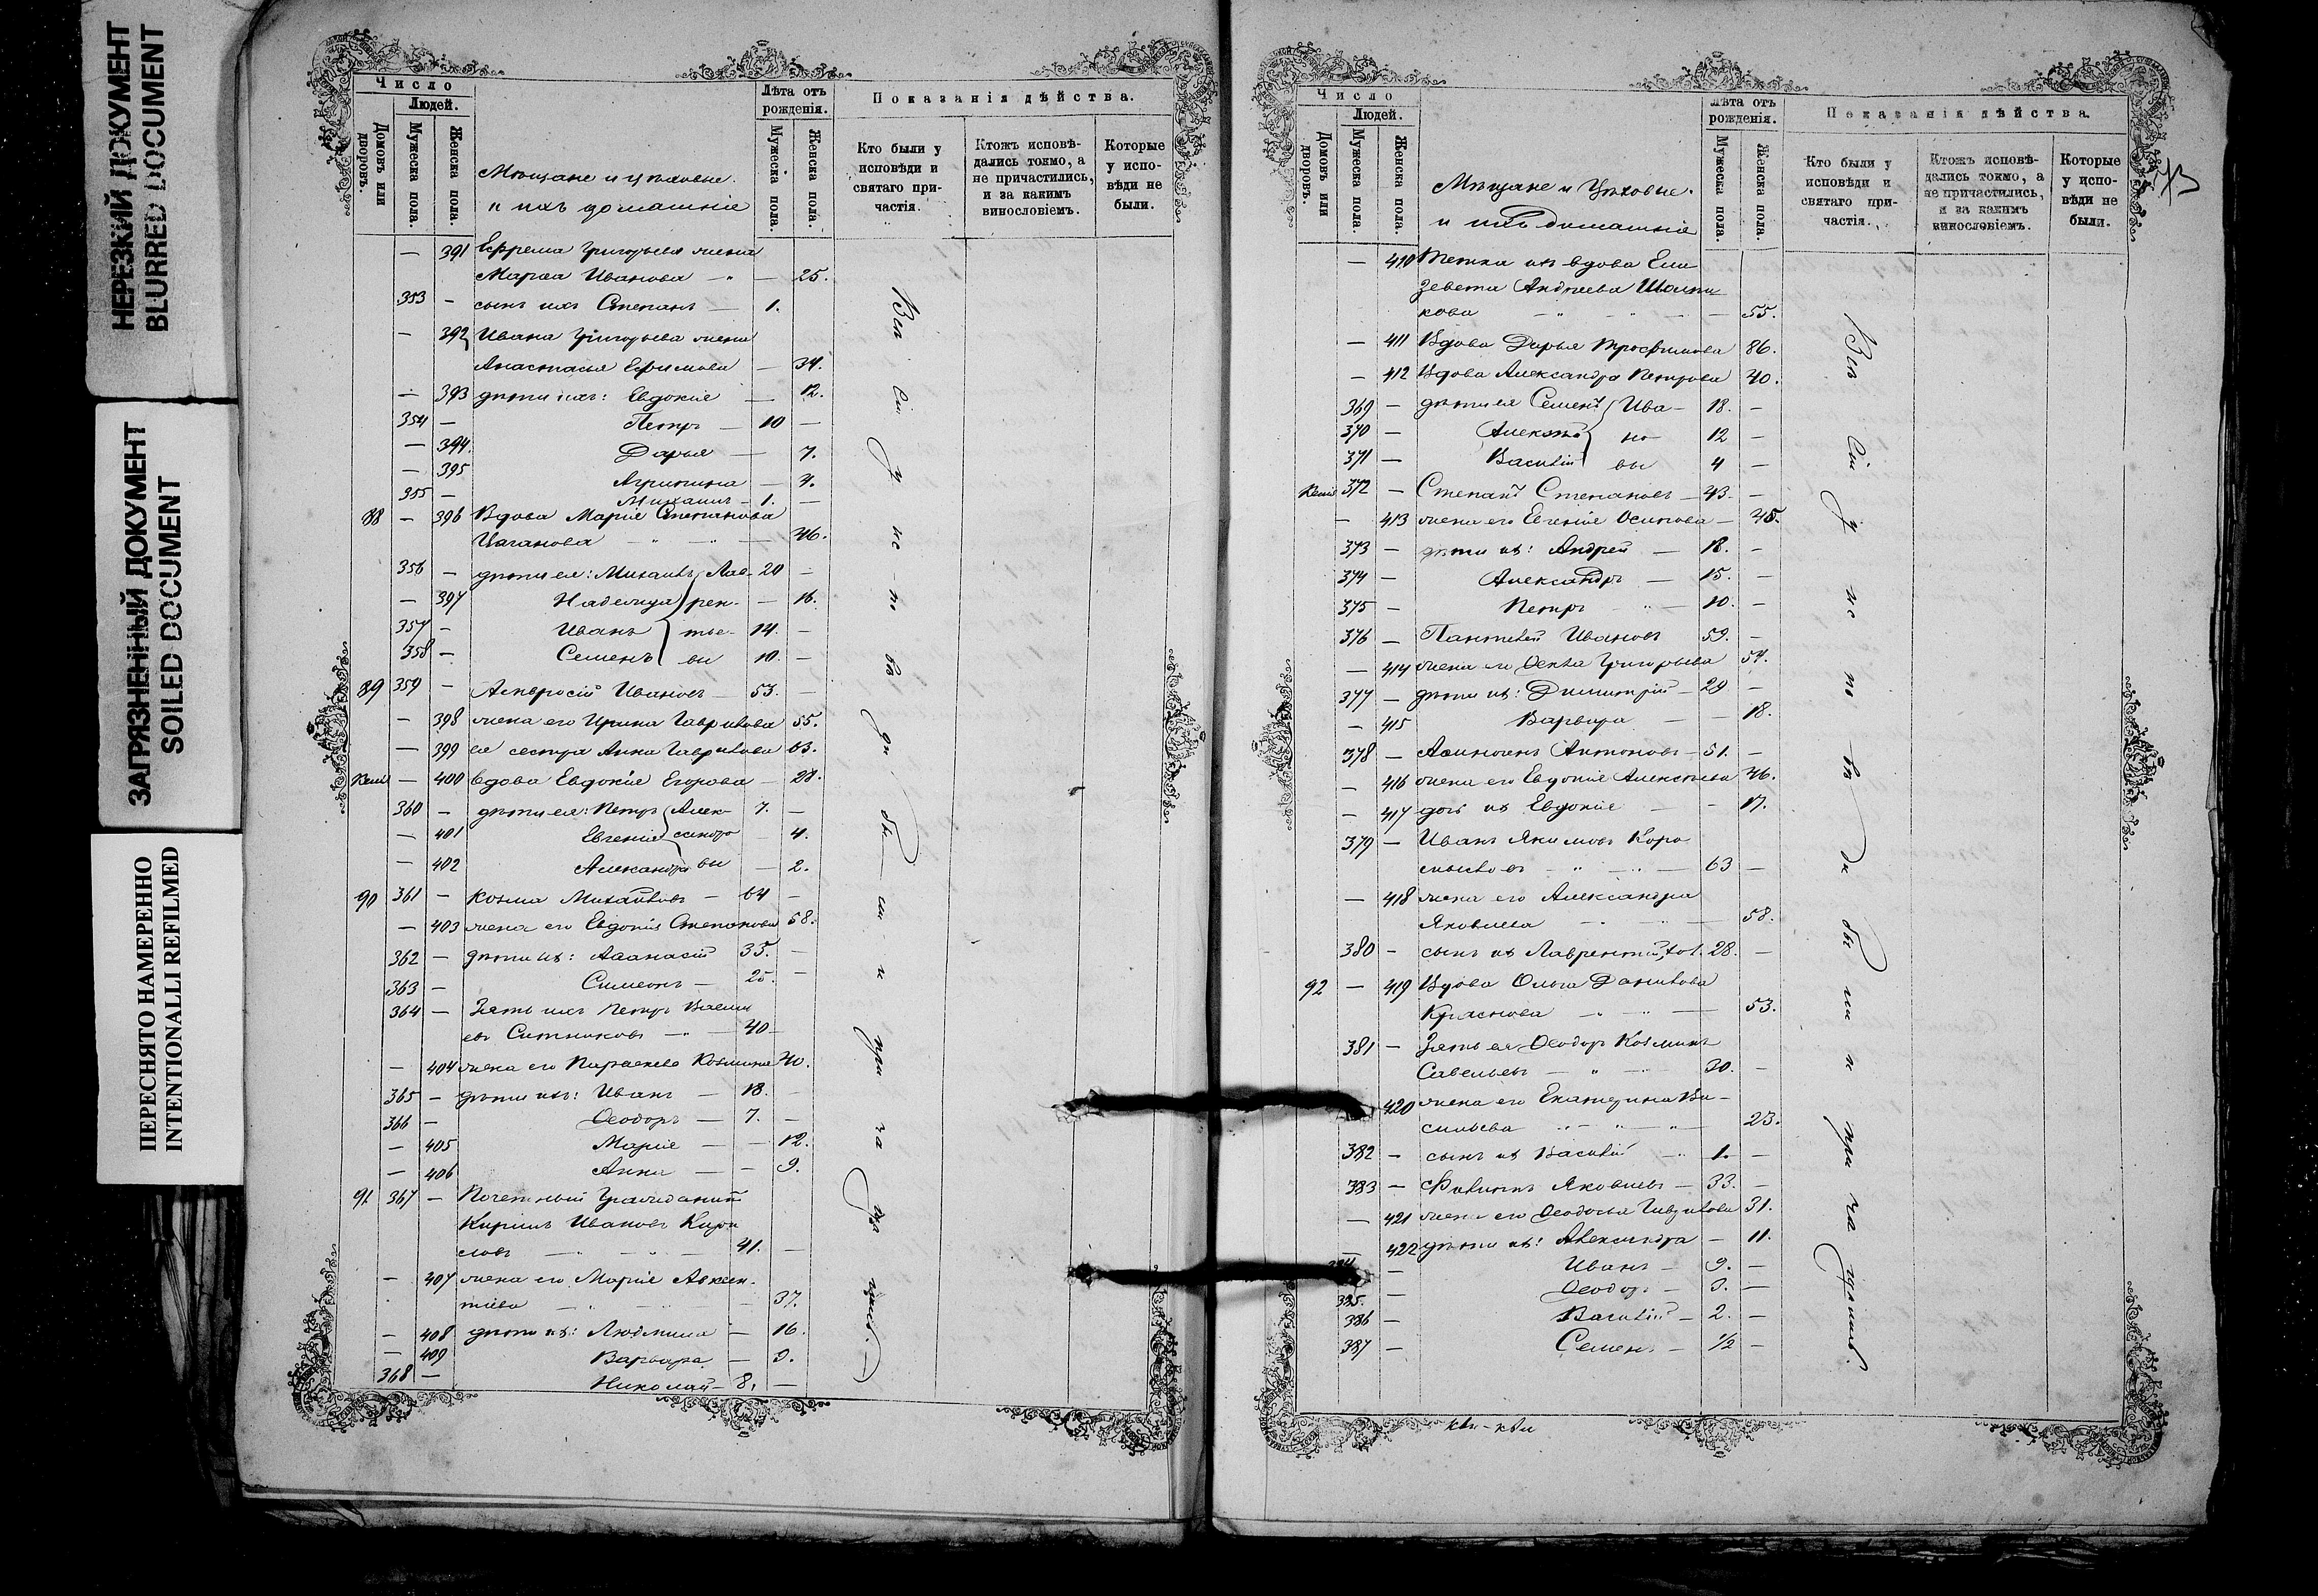 НЕРЕЗКИЙ ДОКУМЕНТ
BLURRED DOCUMENT
ЗАГРЯЗНЕННЫЙ ДОКУМЕНТ
SOILED DOCUMENT
ПЕРЕСНЯТО НАМЕРЕННО
INTENTIONALLI REFILMED
Число
Людей.
Домовъ или дворовъ.
Мужеска пола.
Женска пола.
Мѣщане и цѣховые
и ихъ домашніе
Лѣта отъ рожденія.
Мужеска пола.
Женска пола.
Показанія дѣйства.
Кто были у исповѣди и святаго причастія.
Ктожъ исповѣдались токмо, а не причастились, и за какимъ винословіемъ.
Которые у исповѣди не были.
— 391 Ефрема Григорьева жена
Марѳа Иванова — 25.
353 — сынъ ихъ Степанъ — 1.
— 392 Ивана Григорьева жена
Анастасья Ефимова — 34.
— 393 дѣти ихъ: Евдокія — 12.
354 — Петръ — 10 —
— 394. Дарья — 7.
— 395 Агрипина — 4.
355 — Михаилъ — 1. —
88 — 396 Вдова Марія Степанова
Цыганова — 46.
356 — дѣти ея: Михаилъ Лав- 20 —
— 397 Надежда рен- — 16.
357 — Иванъ тье- 14. —
358 — Семенъ вы 10. —
89 359 — Амвросій Ивановъ — 53. —
— 398 жена его Ирина Гаврилова 55.
— 399 ея сестра Анна Гаврилова 63.
— 400 вдова Евдокія Егорова — 28.
360 — дѣти ея: Петръ Алек- 7. —
— 401 Евгенія сандро — 4.
— 402 Александра вы — 2.
90 361 — Козма Михайловъ — 64 —
— 403 жена его Евдокія Степанова 58.
362 — дѣти ихъ: Аѳанасій 35. —
363 — Симеонъ — 25. —
364 — Зять ихъ Петръ Васильевъ
Ситниковъ — 40 —
— 404 жена его Параскева Козмина 40.
365 — дѣти ихъ: Иванъ — 18. —
366 — Ѳеодоръ — 7. —
— 405 Марія — — 12.
— 406 Анна — — 9.
91 367 — Почетный Гражданинъ
Кирилъ Ивановъ Кири
ловъ — 41. —
— 407 жена его Марія Авксен-
тіева — 37.
— 408 дѣти ихъ: Людмила — 16.
— 409 Варвара — 9.
368 — Николай — 8. —
Всѣ сіи у исповѣди были и причащались.
Число
Людей.
Домовъ или дворовъ.
Мужеска пола.
Женска пола.
Мѣщане и Цѣховые.
и ихъ домашніе
Лѣта отъ рожденія.
Мужеска пола.
Женска пола.
Показанія дѣйства.
Кто были у исповѣди и святаго причастія.
Ктожъ исповѣдались токмо, а не причастились, и за какимъ винословіемъ.
Которые у исповѣди не были.
73
— 410 Тетка их вдова Ели
завета Андреева
кова — 55.
— 411 Вдова Дарья Трофимова 86.
— 412 Вдова Александра Петрова 40.
369 — дѣти ея Семенъ Ива- 18. —
370 — Алексѣй но- 12 —
371 — Василій вы 4 —
372 — Степанъ Степановъ — 43. —
— 413 жена его Евгенія Осипова — 45.
373 — дѣти их: Андрей — 18. —
374 — Александръ — 15. —
375 — Петръ — 10. —
376 — Пантелей Ивановъ 59. —
— 414 жена его Ѳекла Григорьева 57.
377 — дѣти их: Димитрій — 29 —
— 415 Варвара — — 18.
378 — Антоновъ — 51. —
— 416 жена его Евдокія Алексѣева 46.
— 417 дочь их Евдокія — — 17.
379 — Иванъ Якимовъ Коро
мысловъ — 63 —
— 418 жена его Александра
Яковлева — 58.
380 — сынъ их Лаврентій, хол. 28. —
92 — 419 Вдова Ольга Данилова
Краснова — 53.
381 — Зять ея Ѳеодоръ Козминъ
Савельевъ — 30. —
420 жена его Екатерина Ва-
сильева — 23.
382 — сынъ их Василій — 1. —
383 — Филипъ Яковлевъ — 33. —
— 421 жена его Ѳеодосья Гаврилова 31.
— 422 дѣти их: Александра — 11.
384 — Иванъ — 9. —
385. — Ѳеодоръ — 3. —
386 — Василій — 2. —
387 — Семенъ — 1/2 —
Всѣ сіи у исповѣди были и причащались.